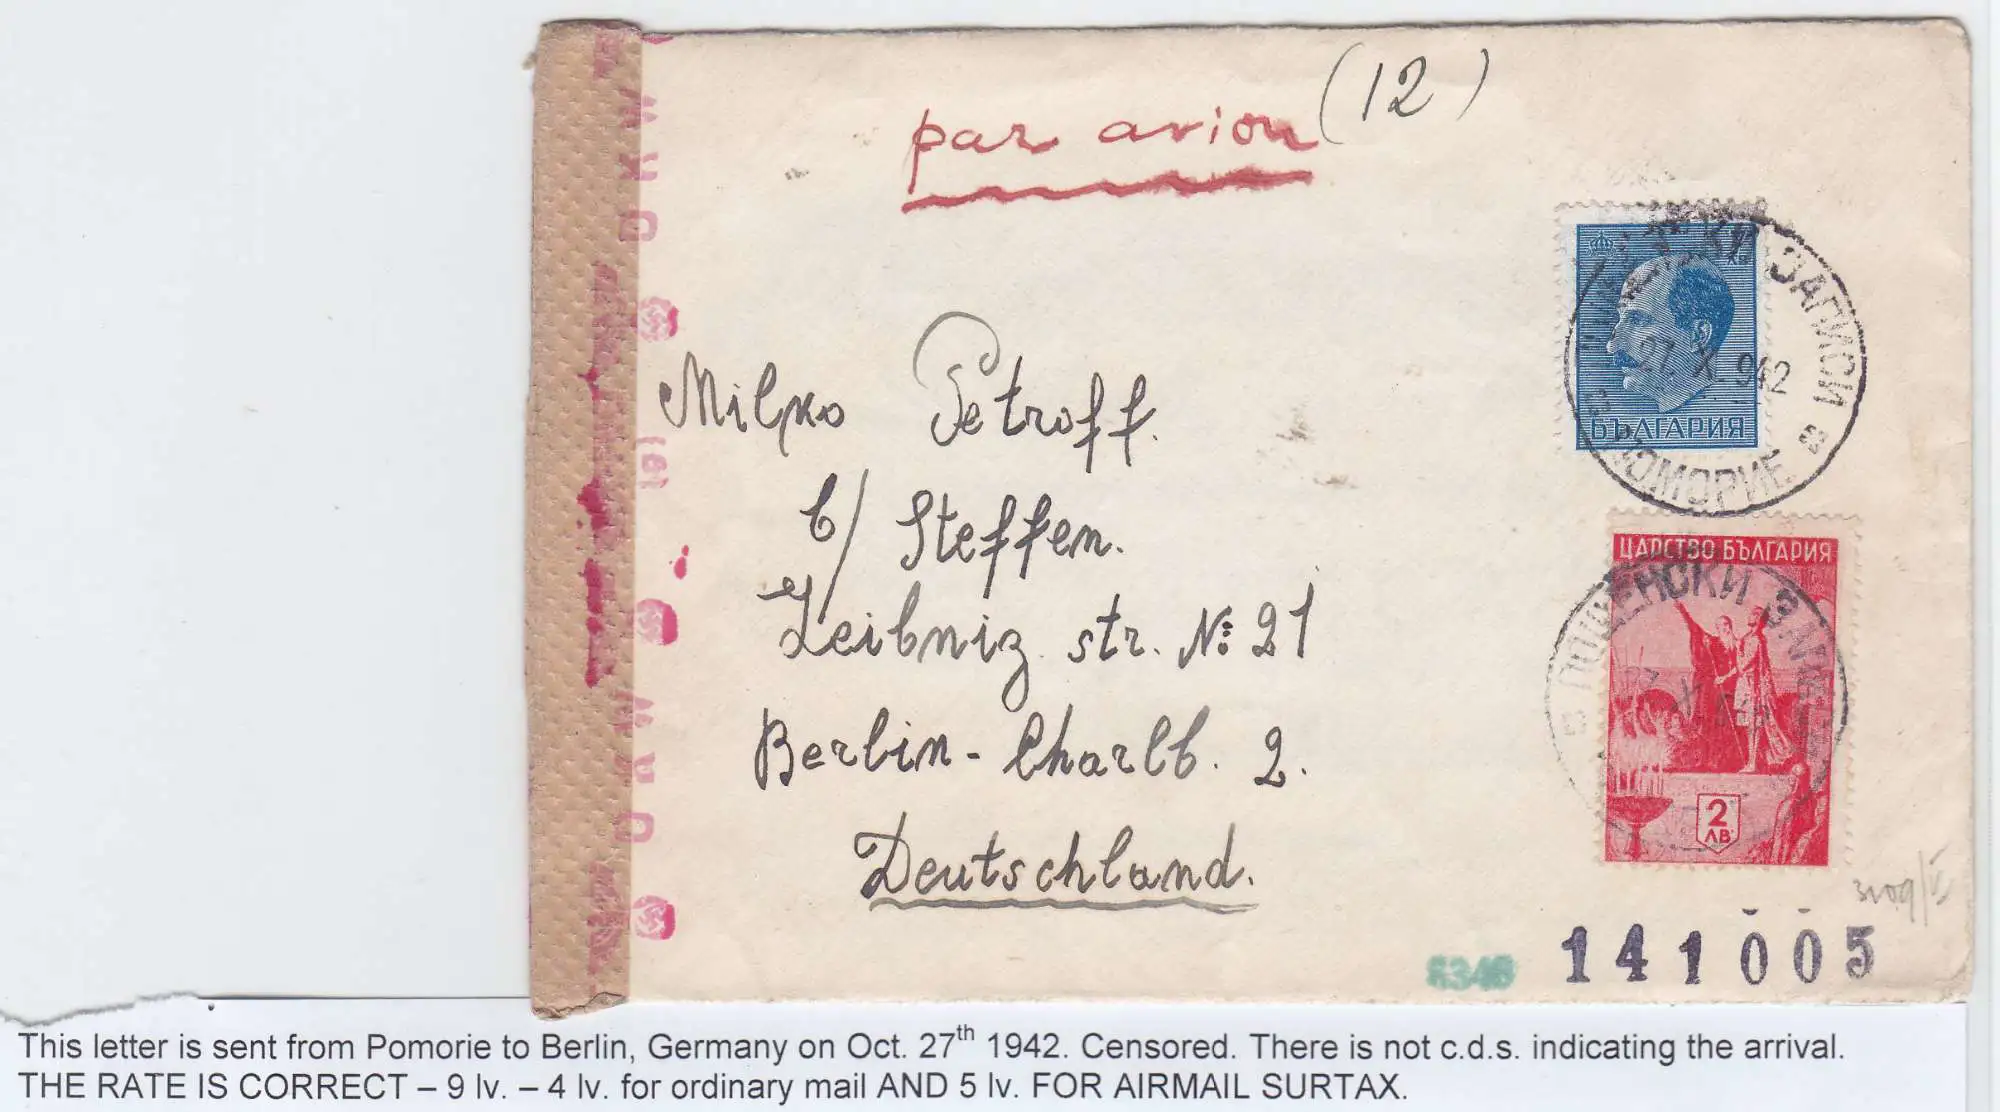 par avion (12)
БЪЛГАРИЯ
ЗАПИСИ
27. X. 942
ПОМОРИЕ
Milko Petroff.
b/ Steffen.
Leibniz str. № 21
Berlin - Charlb. 2.
Deutschland.
ЦАРСТВО БЪЛГАРИЯ
2
ЛВ
O K W
O K W
6346 141005
This letter is sent from Pomorie to Berlin, Germany on Oct. 27th 1942. Censored. There is not c.d.s. indicating the arrival.
THE RATE IS CORRECT – 9 lv. – 4 lv. for ordinary mail AND 5 lv. FOR AIRMAIL SURTAX.